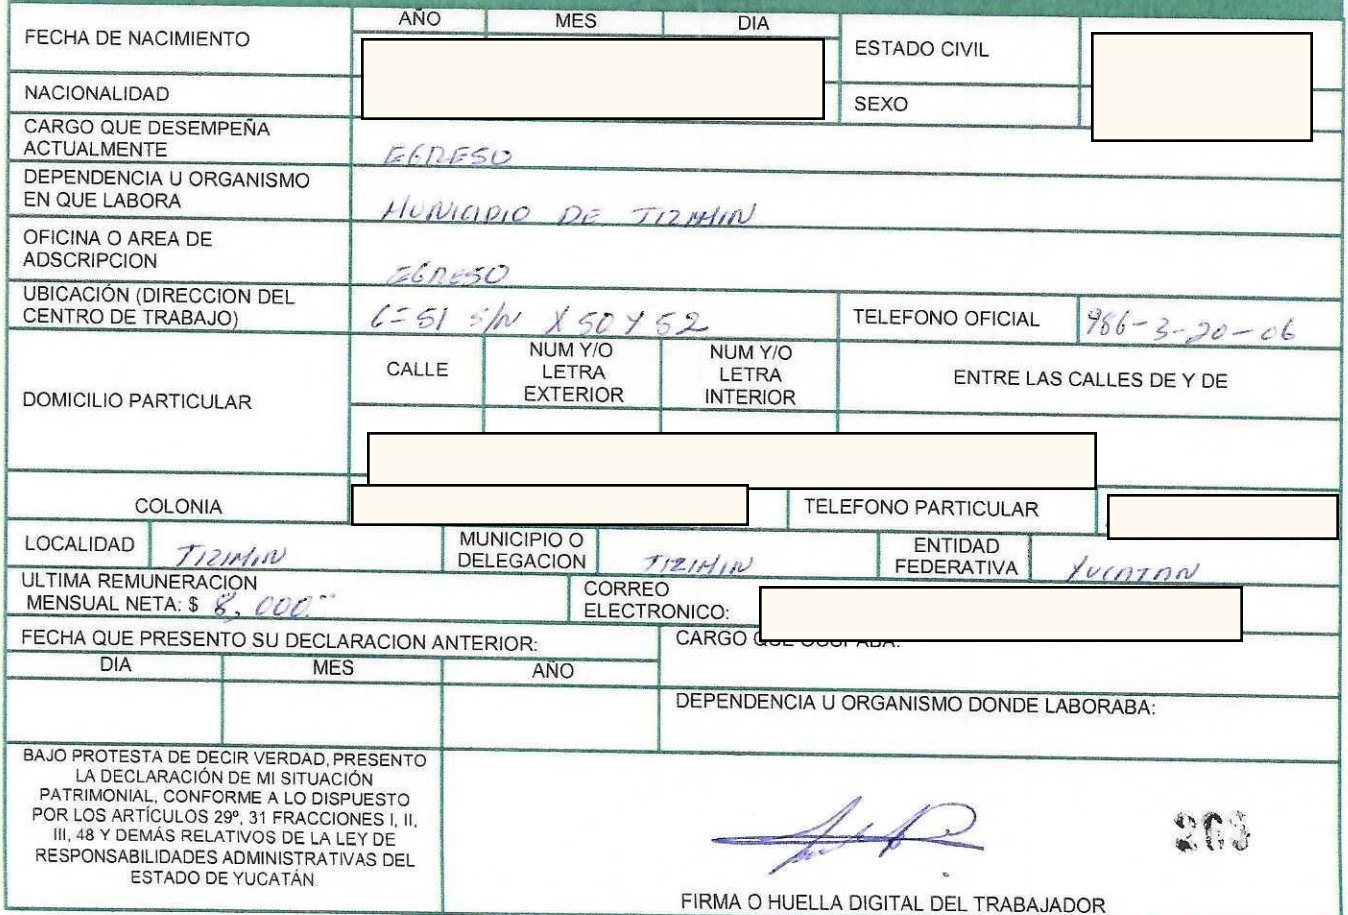 AÑO MES DIA
FECHA DE NACIMIENTO
ESTADO CIVIL
NACIONALIDAD
SEXO
CARGO QUE DESEMPEÑA
ACTUALMENTE
EGRESO
DEPENDENCIA U ORGANISMO
EN QUE LABORA
MUNICIPIO DE TIZIMIN
OFICINA O AREA DE
ADSCRIPCION
EGRESO
UBICACIÓN (DIRECCION DEL
CENTRO DE TRABAJO)
C=51 S/N X 50 Y 52
TELEFONO OFICIAL
986-3-20-06
DOMICILIO PARTICULAR
CALLE
NUM Y/O
LETRA
EXTERIOR
NUM Y/O
LETRA
INTERIOR
ENTRE LAS CALLES DE Y DE
COLONIA
TELEFONO PARTICULAR
LOCALIDAD
TIZIMIN
MUNICIPIO O
DELEGACION
TIZIMIN
ENTIDAD
FEDERATIVA
YUCATAN
ULTIMA REMUNERACION
MENSUAL NETA: $ 8,000.
CORREO
ELECTRONICO:
FECHA QUE PRESENTO SU DECLARACION ANTERIOR:
CARGO QUE OCUPABA:
DIA MES AÑO
DEPENDENCIA U ORGANISMO DONDE LABORABA:
BAJO PROTESTA DE DECIR VERDAD, PRESENTO
LA DECLARACIÓN DE MI SITUACIÓN
PATRIMONIAL, CONFORME A LO DISPUESTO
POR LOS ARTÍCULOS 29º, 31 FRACCIONES I, II,
III, 48 Y DEMÁS RELATIVOS DE LA LEY DE
RESPONSABILIDADES ADMINISTRATIVAS DEL
ESTADO DE YUCATÁN
FIRMA O HUELLA DIGITAL DEL TRABAJADOR